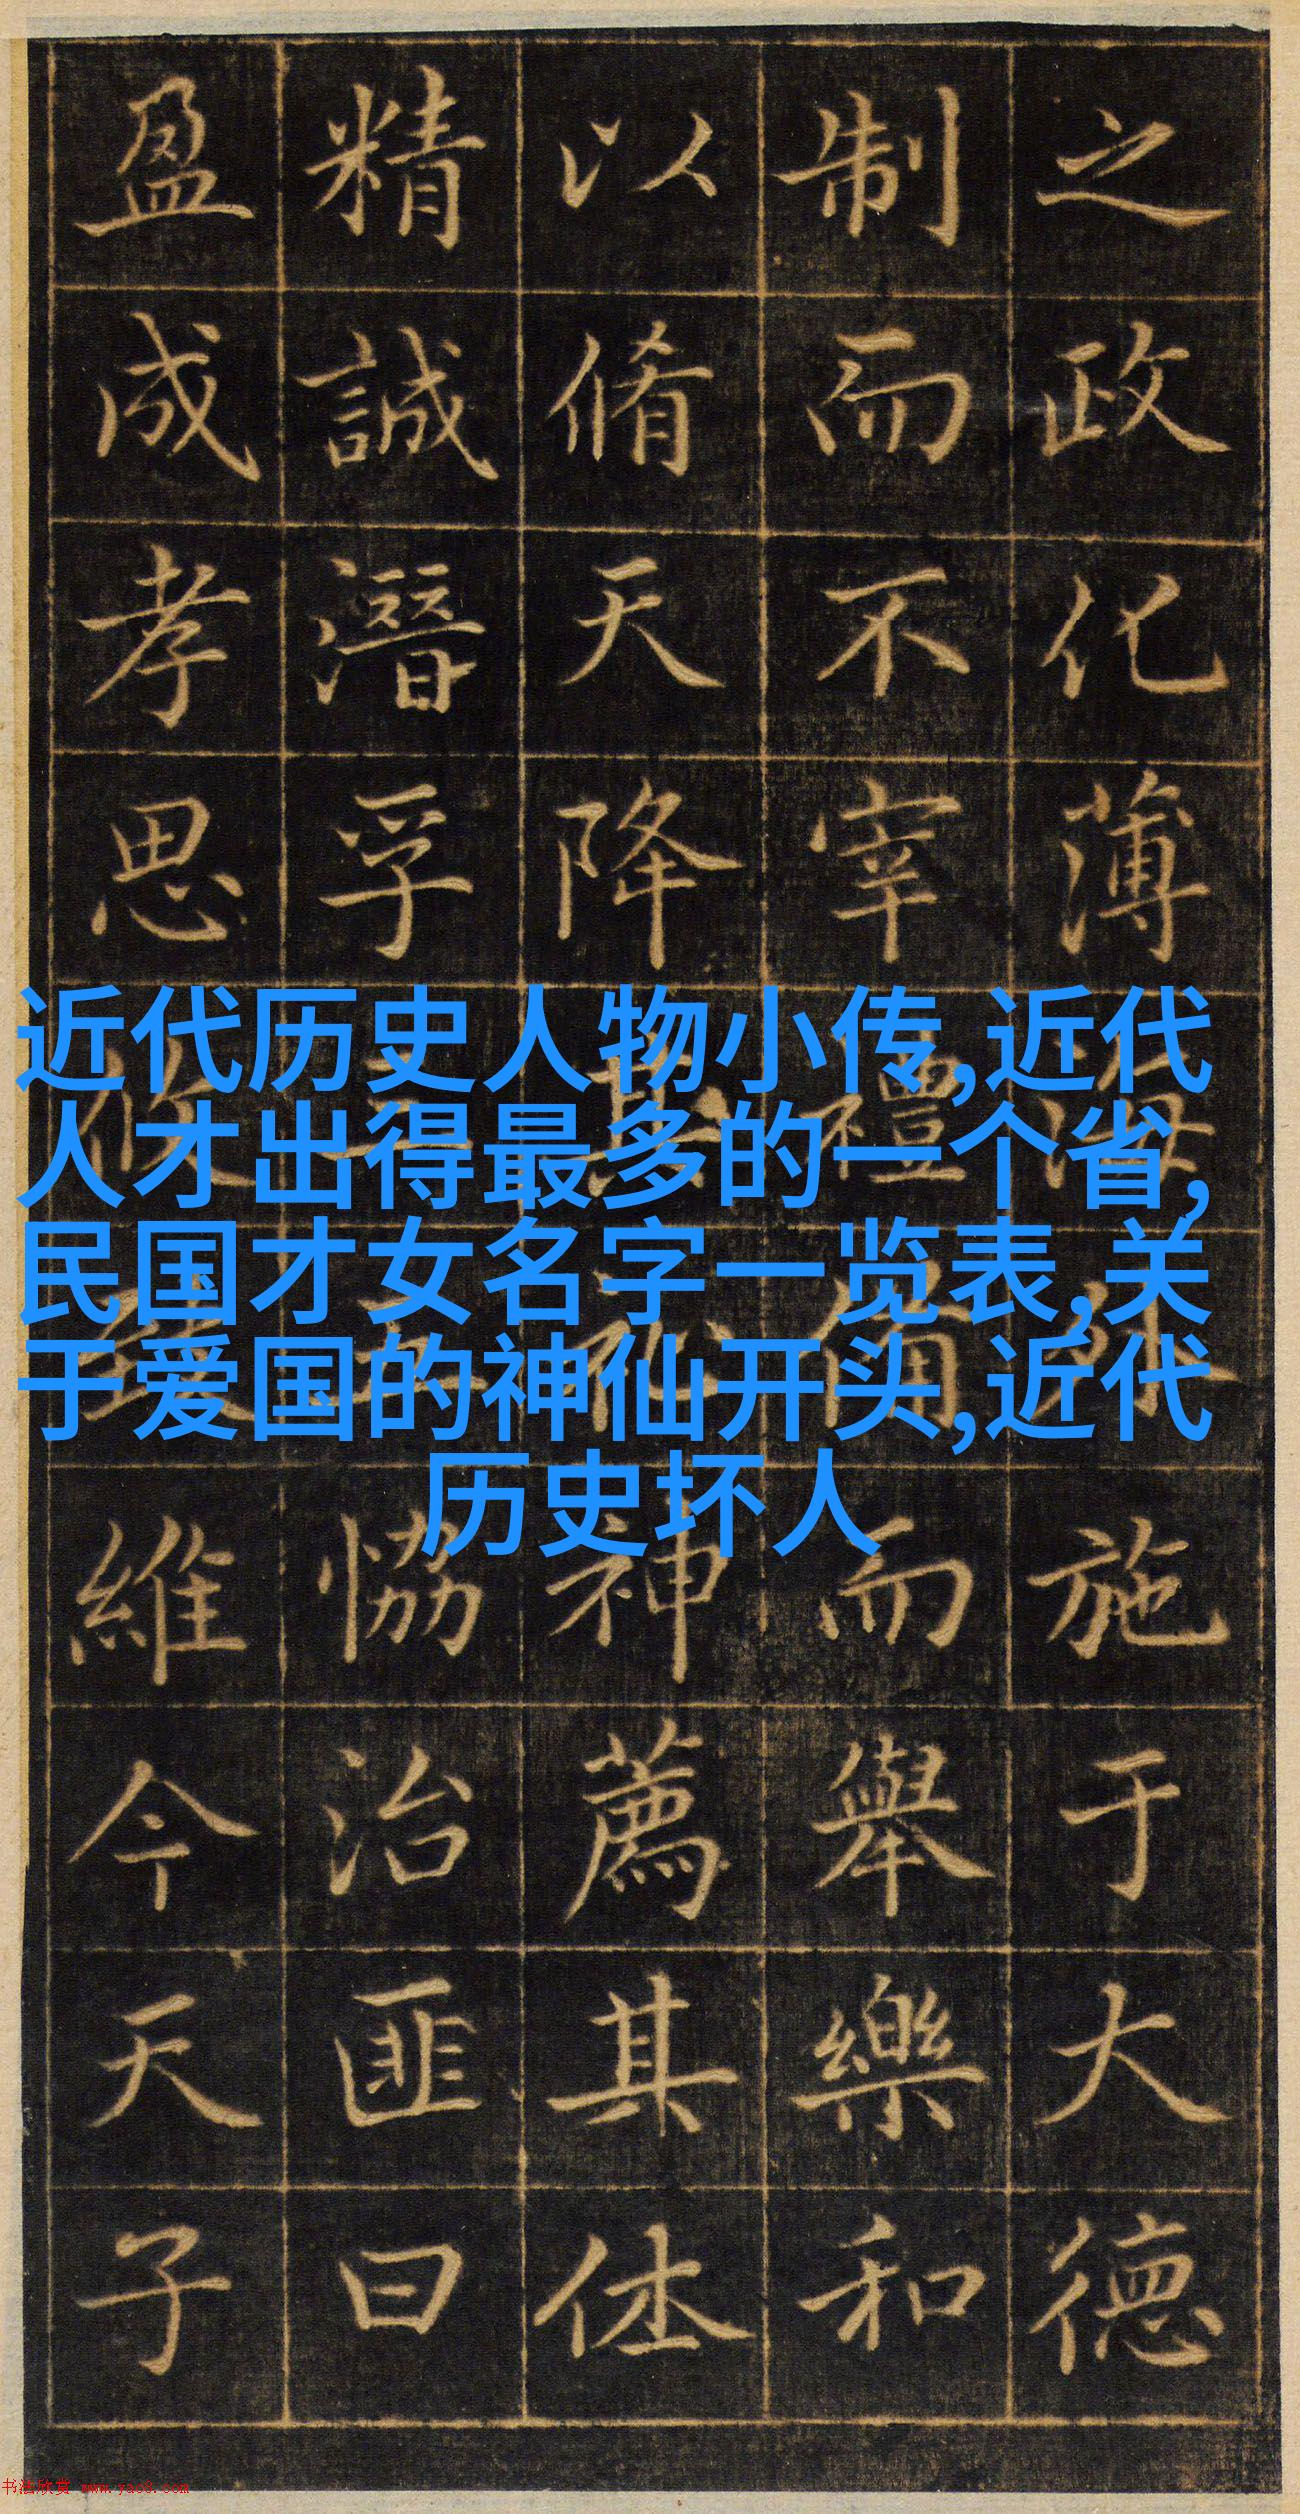 之政化薄海外施于大德
制而不宰禮備而舉樂和
以脩天降其神薦其休
精誠潛孚恊洽匪曰
盈成孝思維今天子
近代历史人物小传,近代
人才出得最多的一个省,
民国才女名字一览表,关
于爱国的神仙开头,近代
历史坏人
书法欣赏 www.yac8.com